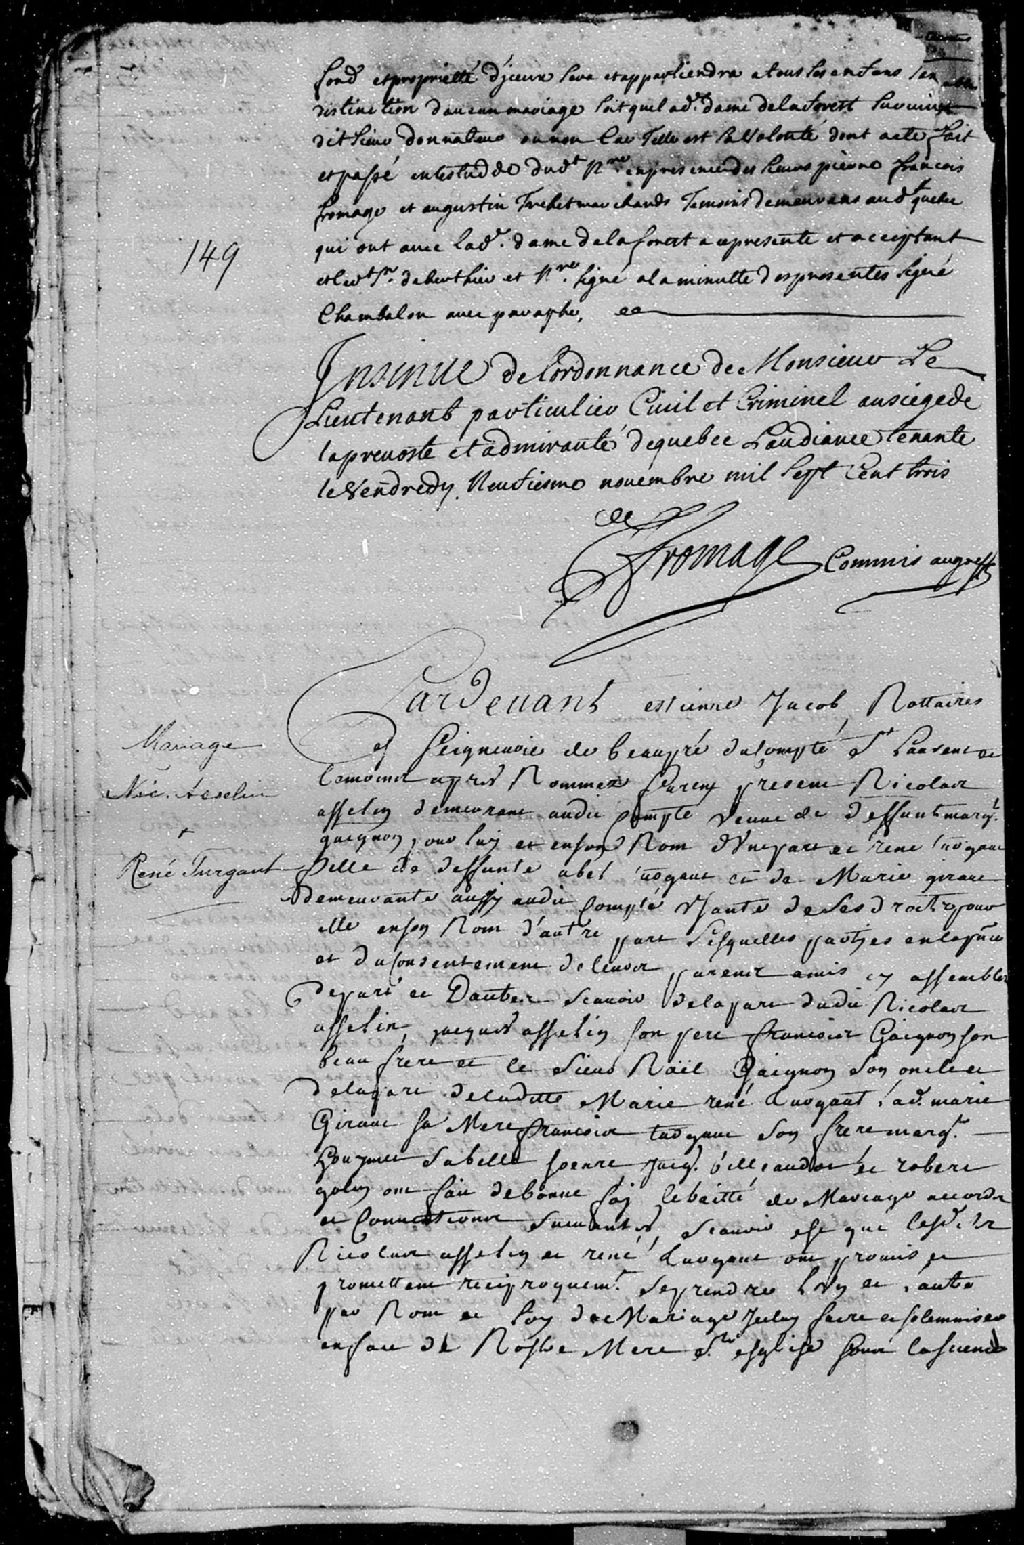 fond et proprieté d'jceux sera et appartiendra a tous les enfans sans
distinction d'aucun mariage soit que lad. dame de la forest survive
dit sieur donnateur ou non Car Telle est sa volonté dont acte fait
et passé en lestude dudt Nre en presence des sieurs pierre francois
fromage et augustin Trehet marchands Temoins demeurans aud quebec
qui ont avec lad. dame de la forest a ce presente et acceptant
et led sr de berthier et Nre signé a la minutte des presentes signé
Chambalon avec paraphe,
149
Insinué de l'ordonnance de Monsieur Le
Lieutenant particulier Civil et Criminel au siege de
la prevosté et admirauté de quebec L'audiance tenante
le Vendredy Neufiesme novembre mil Sept Cent trois
Fromage Commis au greffe
Pardevant estienne Jacob Nottaires
Seigneurie de beaupré du Compté St Laurent
tesmoins apres Nommez furent present Nicolas
asselin demeurant audit Compté veuve de deffunte marg.
gaignon pour luy et en son Nom d'Une part et rené turgant
fille de deffunts abel turgant et de Marie girare
demeurante aussy audit Compté Usante de ses droits pour
elle en son Nom d'autre part Lesquelles partyes en la pnce
et du Consentement de leurs parens amis cy assemblez
de part et Dautre Scavoir de la part dudit Nicolas
asselin jacques asselin son pere francois Gaignon son
beau frere et le Sieur Noël Gaignon son oncle et
de la part de laditte Marie rené turgant lad. marie
Giraue sa Mere francois turgant son frere marg.
et robert
ont fait de bonne foy le traitté de Mariage accords
et Conventions Suivantes, Scavoir est que lesd.
Nicolas asselin et rené turgant ont promis et
promettent reciproquemt. se prendre L'un et l'autre
par Nom et Loy de Mariage Jceluy faire et solemniser
en face de Nostre Mere Ste esglise
Mariage
Nic. Asselin
+
René Turgant